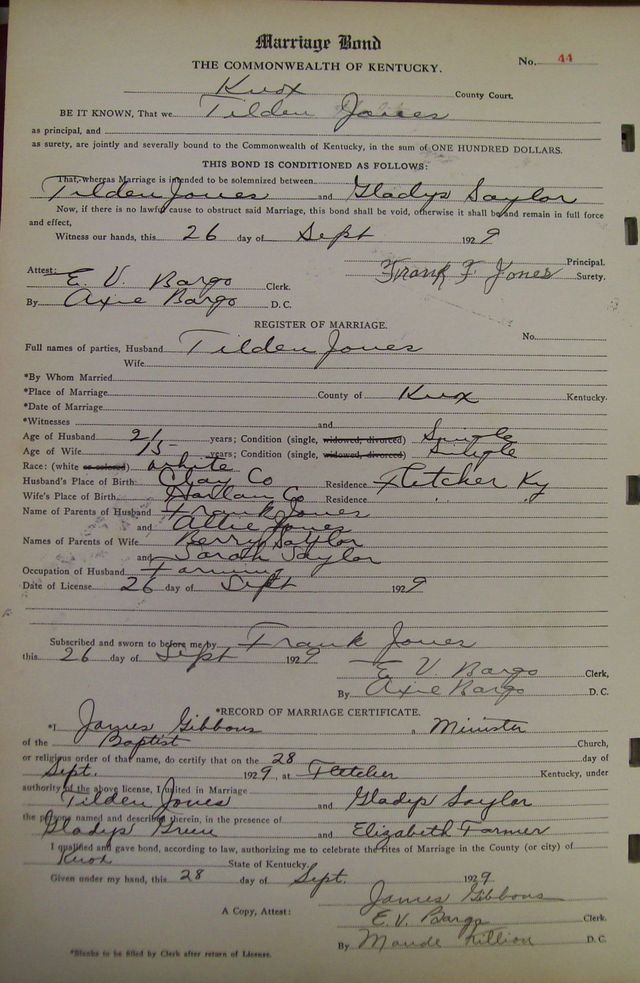 Marriage Bond
THE COMMONWEALTH OF KENTUCKY.
No. 44
Knox County Court.
BE IT KNOWN, That we Tilden Jones
as principal, and
as surety, are jointly and severally bound to the Commonwealth of Kentucky, in the sum of ONE HUNDRED DOLLARS.
THIS BOND IS CONDITIONED AS FOLLOWS:
That, whereas Marriage is intended to be solemnized between
Tilden Jones and Gladys Saylor
Now, if there is no lawful cause to obstruct said Marriage, this bond shall be void, otherwise it shall be and remain in full force
and effect,
Witness our hands, this 26 day of Sept 1929
Principal.
Attest: E. V. Bargo Clerk. Frank F. Jones Surety.
By Axie Bargo D. C.
REGISTER OF MARRIAGE.
No.
Full names of parties, Husband Tilden Jones
Wife
*By Whom Married
*Place of Marriage County of Knox Kentucky.
*Date of Marriage
*Witnesses and
Age of Husband 21 years; Condition (single, widowed, divorced) Single
Age of Wife 15 years; Condition (single, widowed, divorced) Single
Race: (white or colored) white
Husband's Place of Birth: Clay Co Residence Fletcher Ky
Wife's Place of Birth Harlan Co Residence
Name of Parents of Husband Frank Jones
and Allie Jones
Names of Parents of Wife Berry Saylor
and Sarah Saylor
Occupation of Husband Farming
Date of License 26 day of Sept 1929
Subscribed and sworn to before me by Frank Jones
this 26 day of Sept 1929
E. V. Bargo Clerk,
By Axie Bargo D. C.
*RECORD OF MARRIAGE CERTIFICATE.
*I James Gibbons a Minister
of the Baptist Church,
or religious order of that name, do certify that on the 28 day of
Sept. 1929, at Fletcher Kentucky, under
authority of the above license, I united in Marriage
Tilden Jones and Gladys Saylor
the persons named and described therein, in the presence of
Gladys and Elizabeth Farmer
I qualified and gave bond, according to law, authorizing me to celebrate the rites of Marriage in the County (or city) of
Knox State of Kentucky.
Given under my hand, this 28 day of Sept. 1929
James Gibbons
A Copy, Attest: E. V. Bargo Clerk.
By Maude D. C.
*Blanks to be filled by Clerk after return of License.